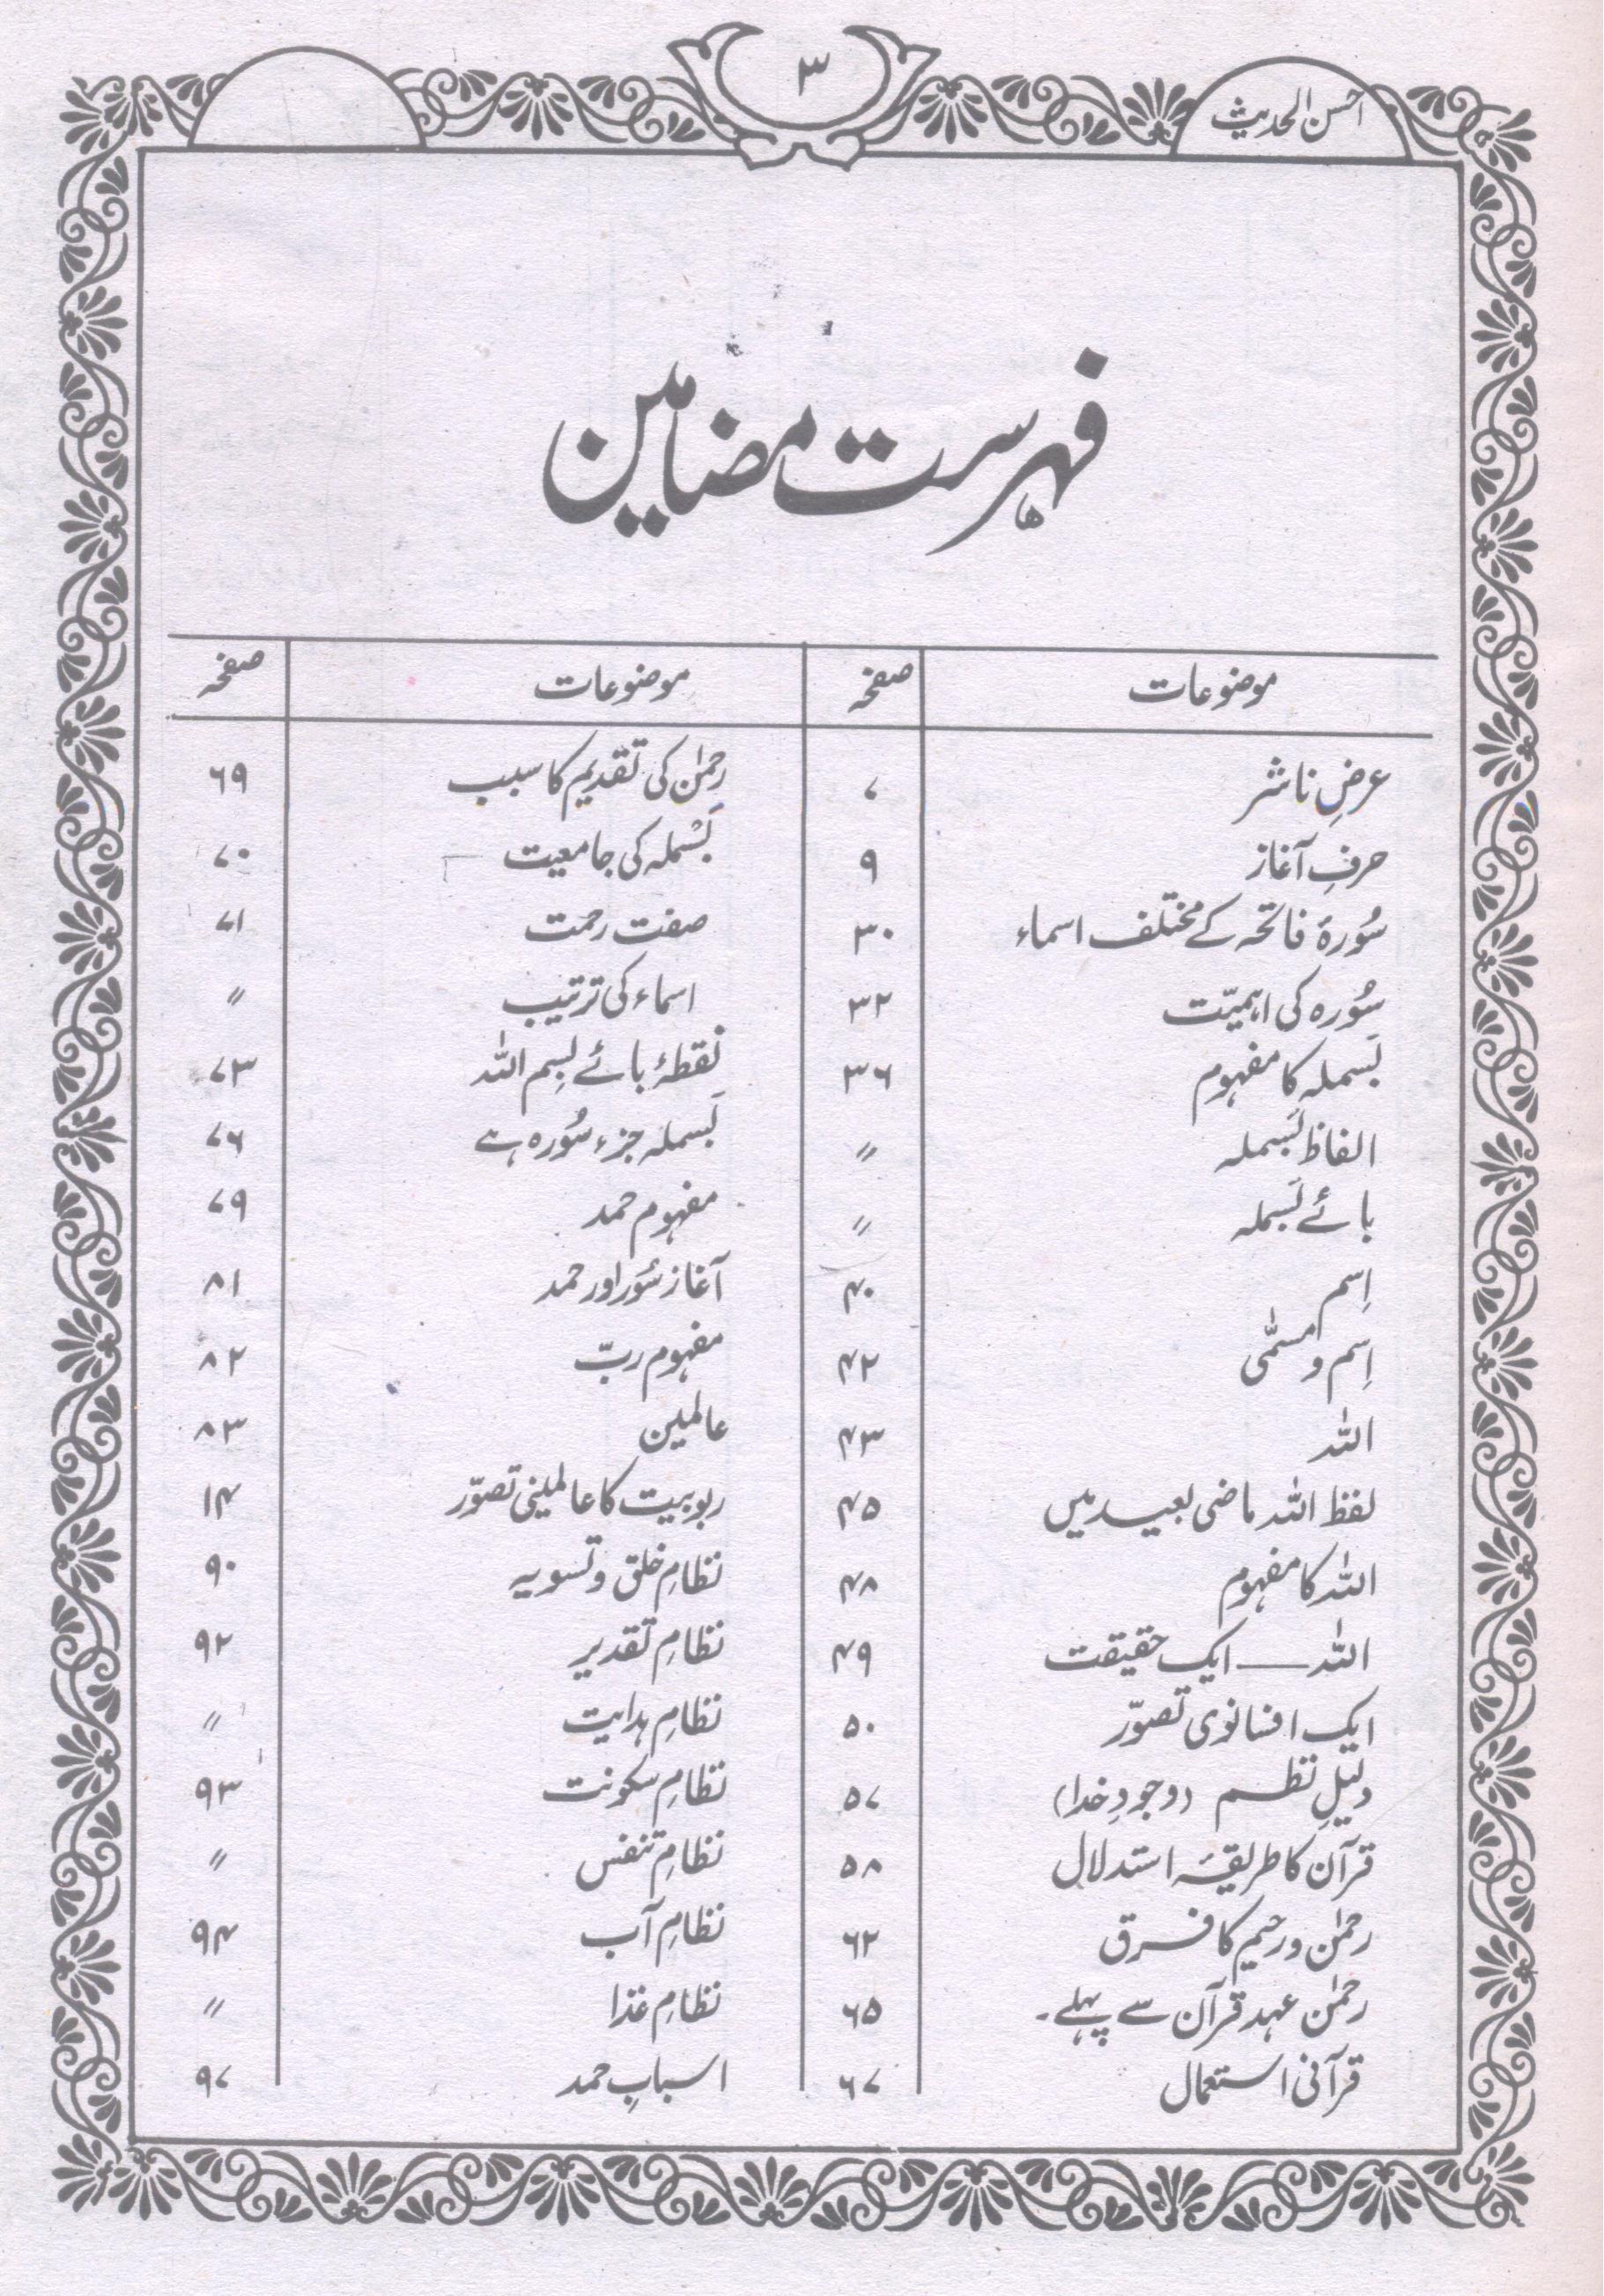 احسن الحدیث
۳
فہرست مضامین
موضوعات صفحہ موضوعات صفحہ
عرضِ ناشر ۷ رحمٰن کی تقدیم کا سبب ۶۹
حرفِ آغاز ۹ بَسْملہ کی جامعیت ۷۰
سُورۂ فاتحہ کے مختلف اسماء ۳۰ صفت رحمت ۷۱
سُورہ کی اہمیّت ۳۲ اسماء کی ترتیب ″
بَسملہ کا مفہوم ۳۶ نقطۂ بائے بِسم اللہ ۷۳
الفاظ بَسملہ ″ بَسملہ جزء سُورہ ہے ۷۶
بائے بَسملہ ″ مفہوم حمد ۷۹
اِسم ۴۰ آغاز سُور اور حمد ۸۱
اِسم و مسمّٰی ۴۲ مفہوم ربّ ۸۲
اللہ ۴۳ عالمین ۸۳
لفظ اللہ ماضی بعید میں ۴۵ ربوبیت کا عالمینی تصوّر ۱۴
اللہ کا مفہوم ۴۸ نظامِ خلق و تسویہ ۹۰
اللہ — ایک حقیقت ۴۹ نظامِ تقدیر ۹۲
ایک افسانوی تصوّر ۵۰ نظامِ ہدایت ″
دلیلِ نظم (وجودِ خدا) ۵۷ نظامِ سکونت ۹۳
قرآن کا طریقۂ استدلال ۵۸ نظامِ تنفس ″
رحمٰن و رحیم کا فرق ۶۲ نظامِ آب ۹۴
رحمٰن عہد قرآن سے پہلے۔ ۶۵ نظامِ غذا ″
قرآنی استعمال ۶۷ اسبابِ حمد ۹۷